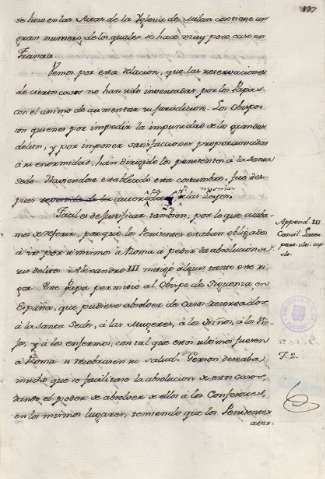 se lee en las Actas de la Yglesia de Milan contiene un
gran numero de los quales se hace muy poco caso en
Francia.
Vemos por esta relacion, que las reservaciones
de ciertos casos no han sido inventadas por los Papas
con el animo de aumentar su jurisdicion. Los Obispos
son quienes por impedir la impunidad de los grandes
delitos, y por imponer satisfacciones proporcionadas
à su enormidad, han dirigido los penitentes à la Santa
Sede. Haviendose establecido esta costumbre, fué des
pues autorizada Leyes.
Facil es de justificar tambien, por lo que acaba
mos de referir, porque los Penitentes estaban obligados
à ir por si mismos à Roma à pedir la absolucion de
sus delitos. Alexandro III mitigò algun tanto este ri
gor. Este Papa permitiò al Obispo de Siguenza en
España, que pudiese absolver de casos reservados
à la Santa Sede, à las Mugeres, à los Niños, à los Vie
jos, y à los enfermos, con tal que estos ultimos fuesen
à Roma si recobrasen su salud. Gerson deseaba
mucho que se facilitase la absolucion de estos casos,
dando el poder de absolver de ellos à los Confesores,
en los mismos lugares, temiendo que los Penitentes
Append. III
Concil. Later.
part.
F. 2.